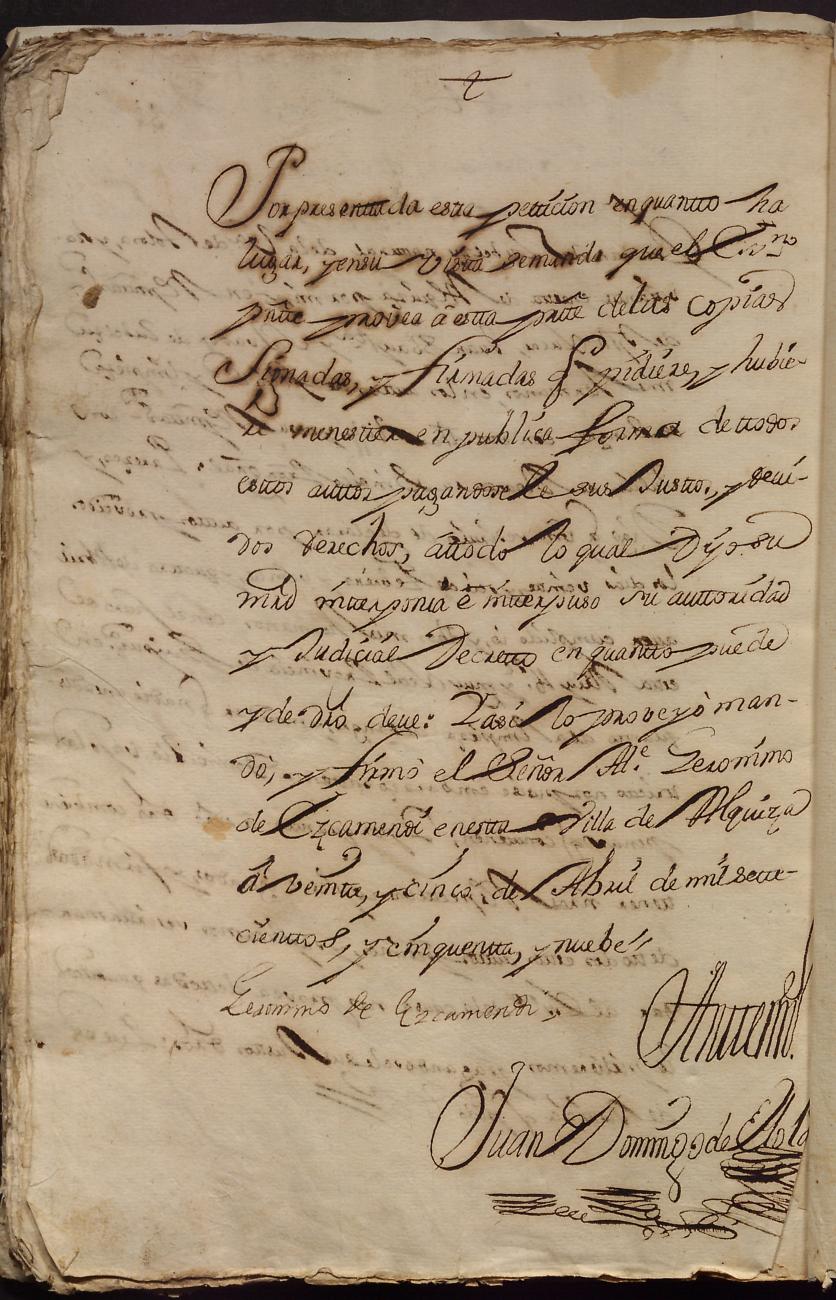 Por presenttada esta petticion en quantto ha
lugar, y en su vistta demanda que el Ess.no
pntte provea â estta pntte de las copias
Signadas, y firmadas q.e pidiere, y hubie-
re menestter en publica forma de ttodos
esttos auttos pagandosele sus Justtos, y devi-
dos derechos, âttodo lo qual Dijo su
mrd intterponia è intterpuso su auttoridad
y Judicial Decretto en quantto puede
y de dro deve: Y asi lo proveyò man-
dò, y firmò el Señor Al.e Geronimo
de Ezcamendi en estta Villa de Alquiza
â veintte, y cinco de Abril de mil sette-
cienttos, y cinquentta, y nuebe,
Geronimo de Ezcamendi
Anttemi.
Juan Domingo de